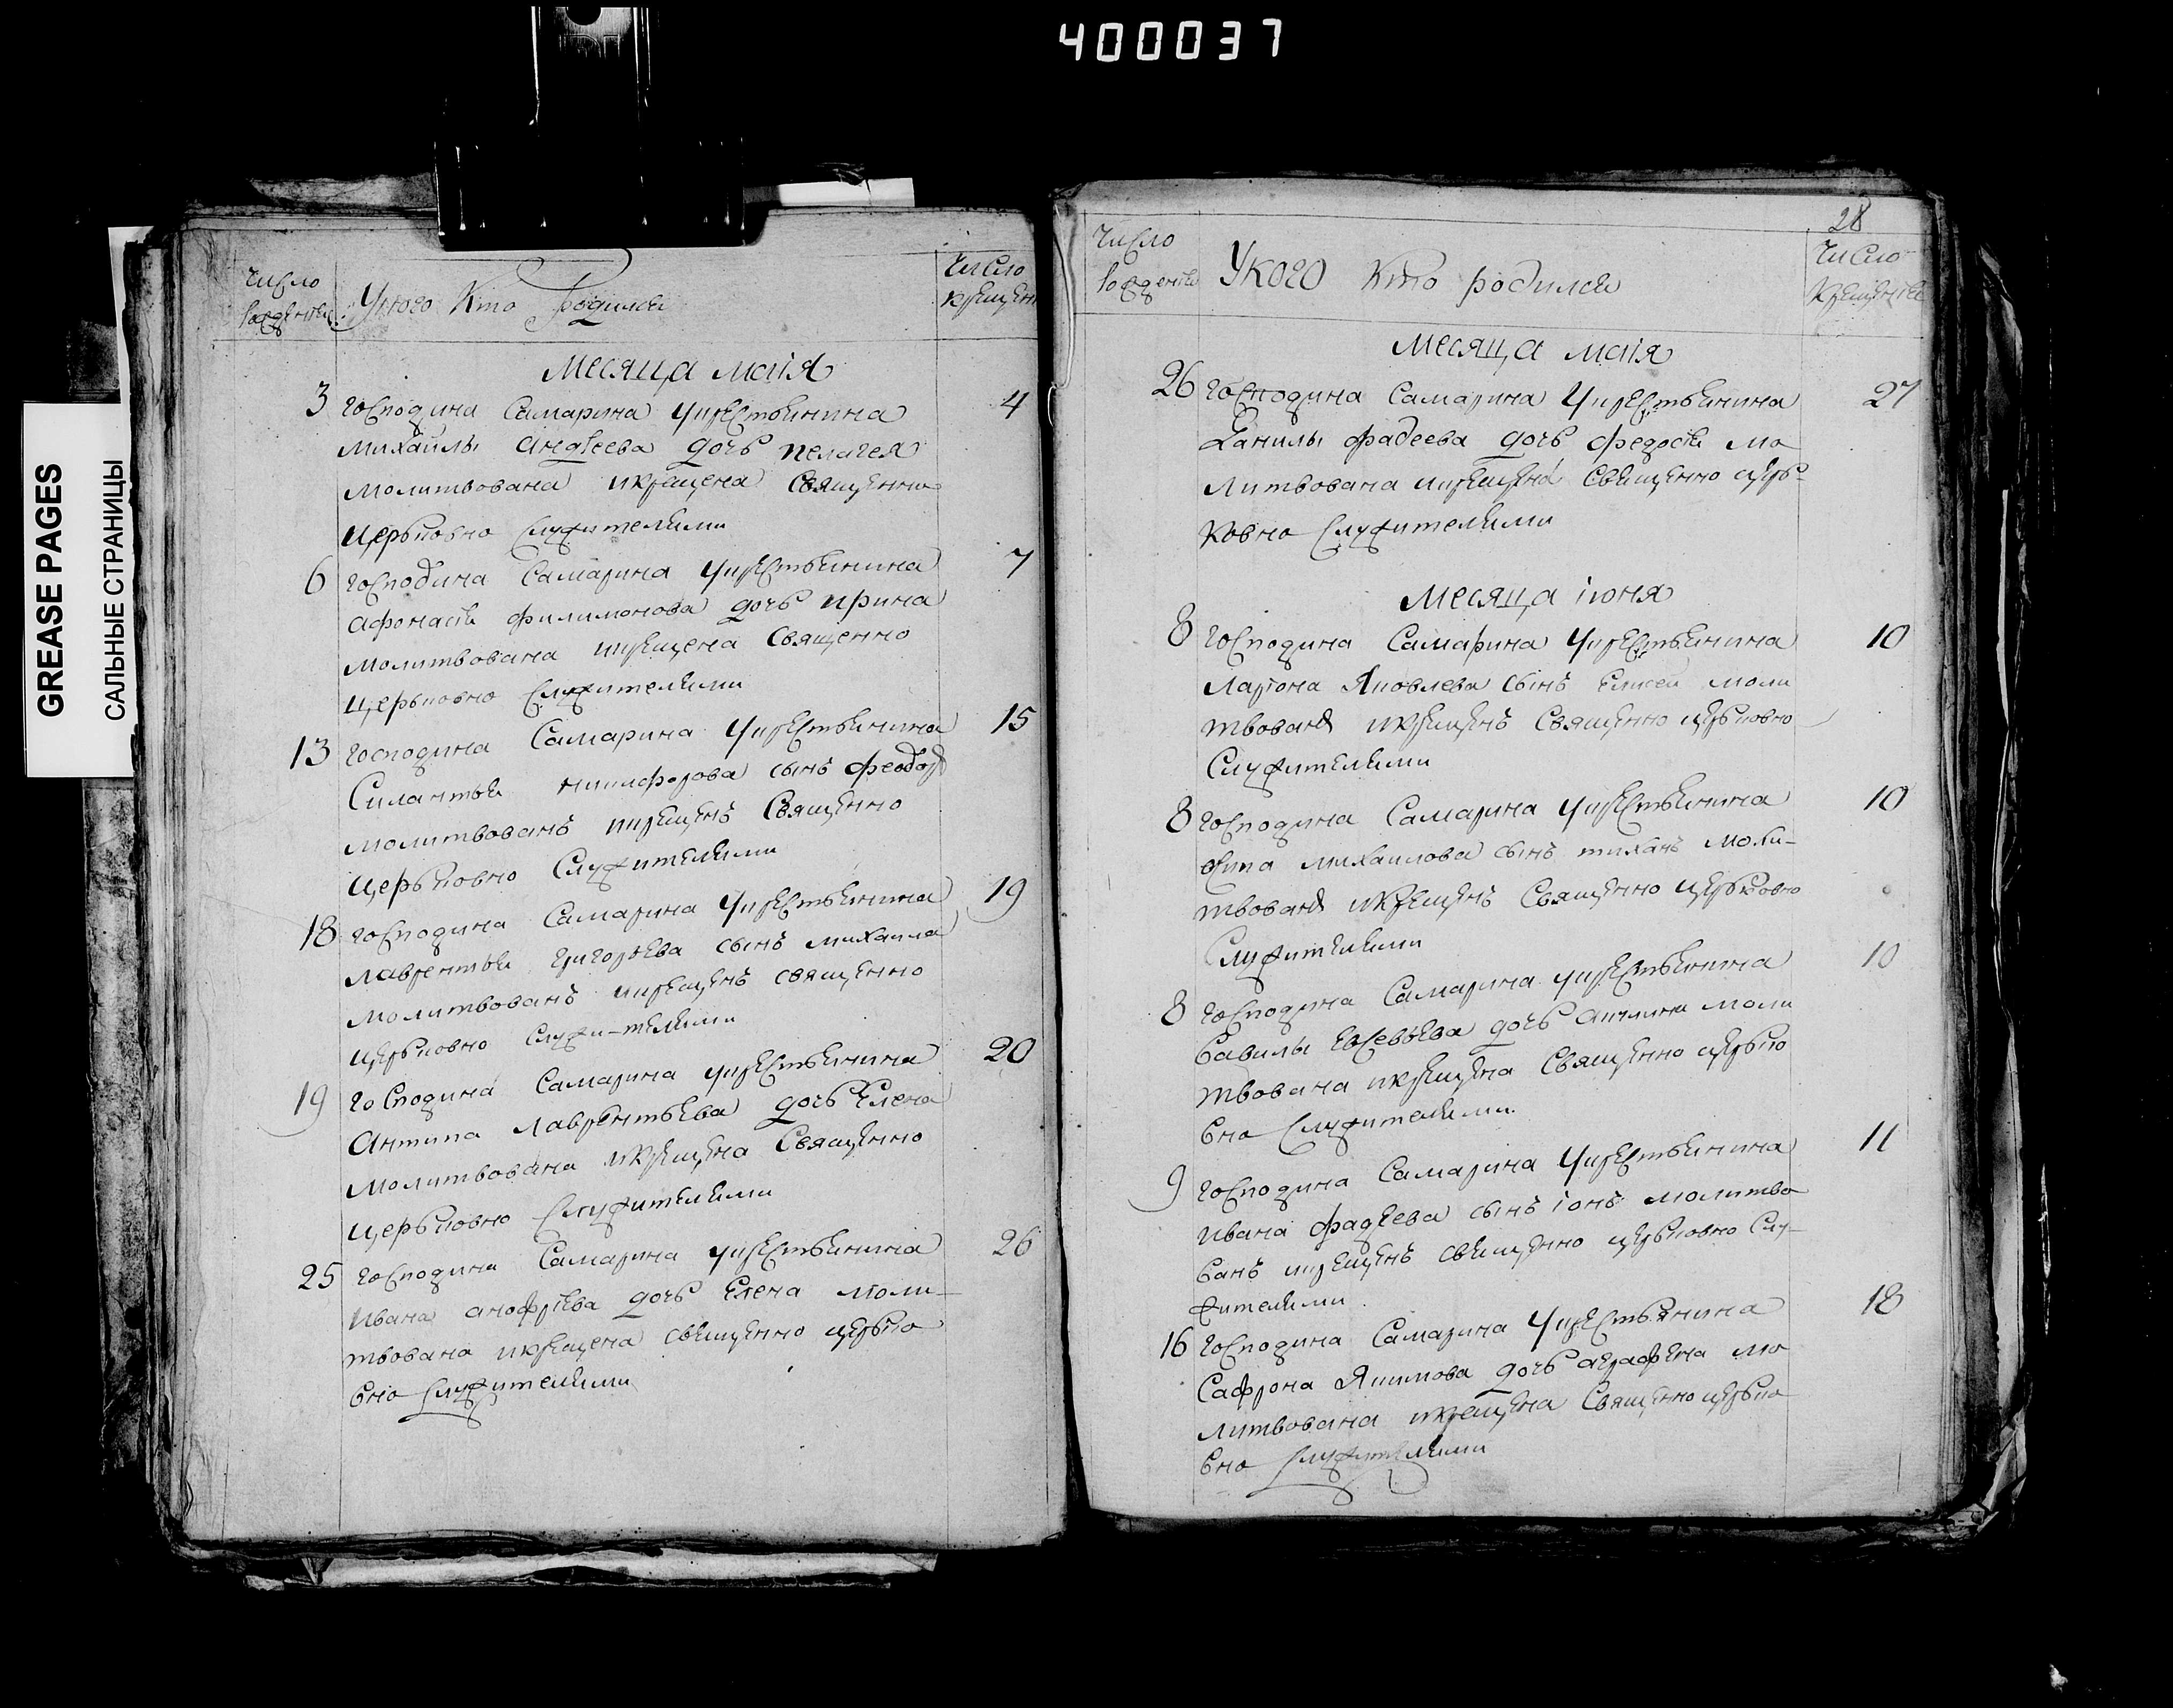 400037
GREASE PAGES
САЛЬНЫЕ СТРАНИЦЫ
Число рожденiя
У кого кто родился
Число крещени
месяца маiя
3 господина Самарина укрестьянина 4
михаилы андреева дочь пелагея
молитвована икрещена священно
церьковно служителями
6 господина Самарина укрестьянина 7
афонасiя филимонова дочь ирина
молитвована икрещена священно
церьковно служителями
13 господина Самарина укрестьянина 15
Силантья никифорова сынъ феодоръ
молитвованъ икрещенъ священно
церьковно служителями
18 господина Самарина укрестьянина 19
лаврентья григорьева сынъ михаила
молитвованъ икрещенъ священно
церьковно служи-телями
19 господина Самарина укрестьянина 20
Антипа лаврентьева дочь Елена
молитвована икрещена Священно
церьковно служителями
25 господина Самарина укрестьянина 26
ивана анофрiева дочь Елена моли-
твована икрещена священно церько
вно служителями
28
Число рожденiя
У кого кто родился
Число крещенiя
месяца маiя
26 господина Самарина укрестьянина 27
Данилы фадеева дочь федосiя мо
литвована икрещена священно церь-
ковно служителями
месяца iюня
8 господина Самарина укрестьянина 10
Ларiона Яковлева сынъ Елисей моли
твованъ икрещенъ Священно церьковно
Служителями
8 господина Самарина укрестьянина 10
михаилова сынъ тиханъ моли-
твованъ икрещенъ Священно церьковно
Служителями
8 господина Самарина укрестьянина 10
Савилы Евсевьева дочь акилина моли
твована икрещена Священно церько
вно Служителями
9 господина Самарина укрестьянина 11
ивана фадеева сынъ iонъ молитво
ванъ икрещенъ священно церьковно Слу-
жителями
16 господина Самарина укрестьянина 18
Сафрона Якимова дочь аграфена мо
литвована икрещена Священно церько
вно служителями